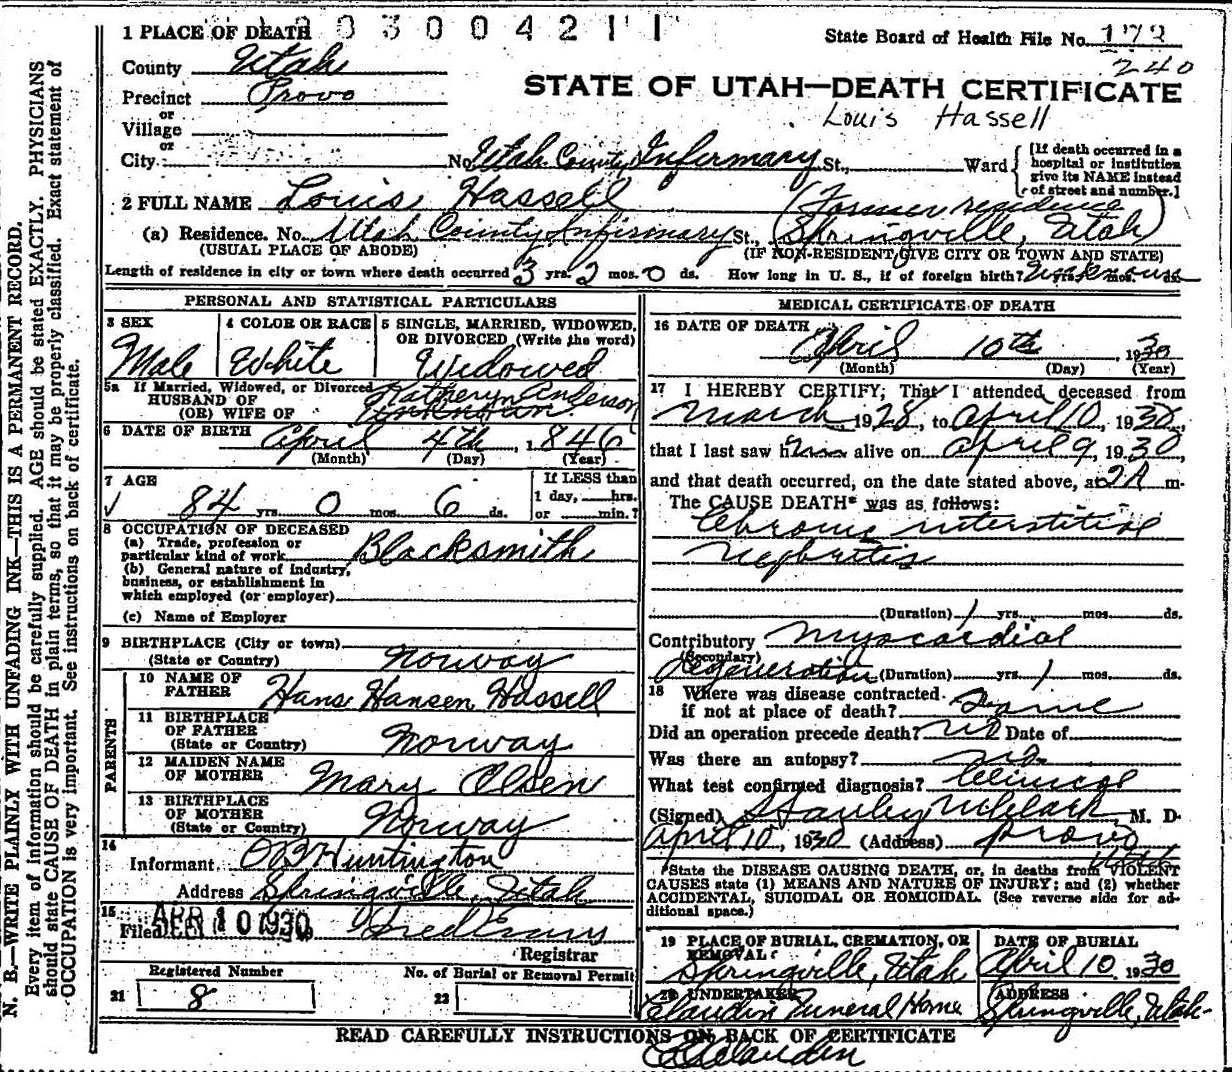 300421
1 PLACE OF DEATH
State Board of Health File No. 172
240
County Utah
Precinct Provo
or
Village
or
City
STATE OF UTAH—DEATH CERTIFICATE
Louis Hassell
No. Utah County Infirmary St., Ward
[If death occurred in a hospital or institution give its NAME instead of street and number.]
2 FULL NAME Louis Hassell
(Former residence
(a) Residence. No. Utah County Infirmary St., Springville, Utah)
(USUAL PLACE OF ABODE) (IF NON-RESIDENT, GIVE CITY OR TOWN AND STATE)
Length of residence in city or town where death occurred 3 yrs. 2 mos. 0 ds. How long in U. S., if of foreign birth? Unknown
PERSONAL AND STATISTICAL PARTICULARS
3 SEX Male
4 COLOR OR RACE White
5 SINGLE, MARRIED, WIDOWED, OR DIVORCED (Write the word) Widowed
5a If Married, Widowed, or Divorced
HUSBAND OF Katheryn Anderson
(OR) WIFE OF Unknown
6 DATE OF BIRTH April 4th, 1846
(Month) (Day) (Year)
7 AGE 84 yrs. 0 mos. 6 ds.
If LESS than 1 day, hrs. or min.?
8 OCCUPATION OF DECEASED
(a) Trade, profession or particular kind of work Blacksmith
(b) General nature of industry, business, or establishment in which employed (or employer)
(c) Name of Employer
9 BIRTHPLACE (City or town)
(State or Country) Norway
PARENTS
10 NAME OF FATHER Hans Hansen Hassell
11 BIRTHPLACE OF FATHER (State or Country) Norway
12 MAIDEN NAME OF MOTHER Mary Olsen
13 BIRTHPLACE OF MOTHER (State or Country) Norway
14
Informant O B Huntington
Address Springville, Utah
15 Filed APR 10 1930 Fred Evans
Registrar
Registered Number
21 8
No. of Burial or Removal Permit
22
MEDICAL CERTIFICATE OF DEATH
16 DATE OF DEATH April 10th, 1930
(Month) (Day) (Year)
17 I HEREBY CERTIFY, That I attended deceased from
March 1928, to April 10, 1930,
that I last saw him alive on April 9, 1930,
and that death occurred, on the date stated above, at 2 A m.
The CAUSE DEATH* was as follows:
Chronic interstitial
Nephritis
(Duration) 1 yrs. mos. ds.
Contributory Myocardial
(Secondary) Degeneration (Duration) yrs. 1 mos. ds.
18 Where was disease contracted if not at place of death?
Did an operation precede death? no Date of
Was there an autopsy? no
What test confirmed diagnosis? Clinical
(Signed) Stanley M Clark, M. D.
April 10, 1930 (Address) Provo Utah
*State the DISEASE CAUSING DEATH, or, in deaths from VIOLENT
CAUSES state (1) MEANS AND NATURE OF INJURY; and (2) whether
ACCIDENTAL, SUICIDAL OR HOMICIDAL. (See reverse side for ad-
ditional space.)
19 PLACE OF BURIAL, CREMATION, OR REMOVAL Springville, Utah
DATE OF BURIAL April 10 1930
20 UNDERTAKER Claudin Funeral Home
ADDRESS Springville, Utah
READ CAREFULLY INSTRUCTIONS ON BACK OF CERTIFICATE
Claudin
N. B.—WRITE PLAINLY WITH UNFADING INK—THIS IS A PERMANENT RECORD.
Every item of information should be carefully supplied. AGE should be stated EXACTLY. PHYSICIANS
should state CAUSE OF DEATH in plain terms, so that it may be properly classified. Exact statement of
OCCUPATION is very important. See instructions on back of certificate.